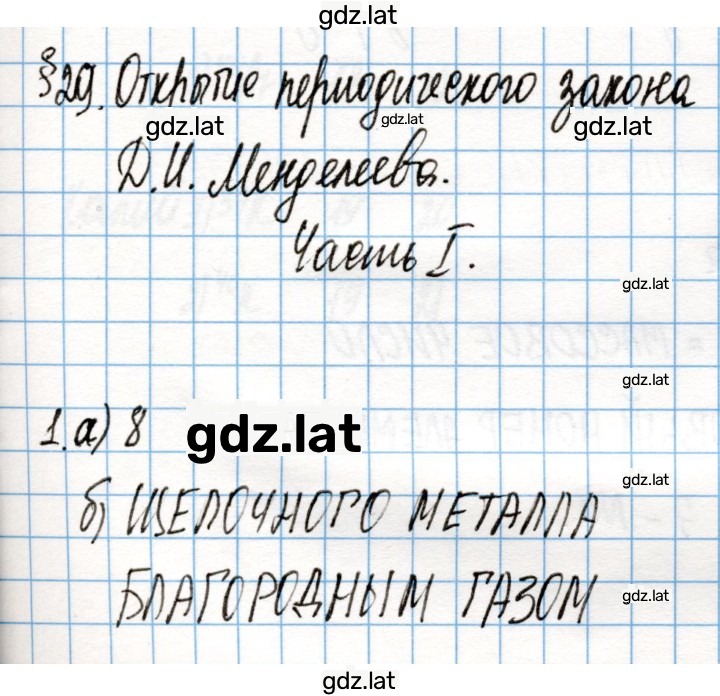 gdz.lat
§29. Открытие периодического закона
gdz.lat gdz.lat gdz.lat
Д.И. Менделеева.
Часть I.
gdz.lat
gdz.lat
1. а) 8 gdz.lat
gdz.lat
б) ЩЕЛОЧНОГО МЕТАЛЛА
БЛАГОРОДНЫМ ГАЗОМ gdz.lat
gdz.lat